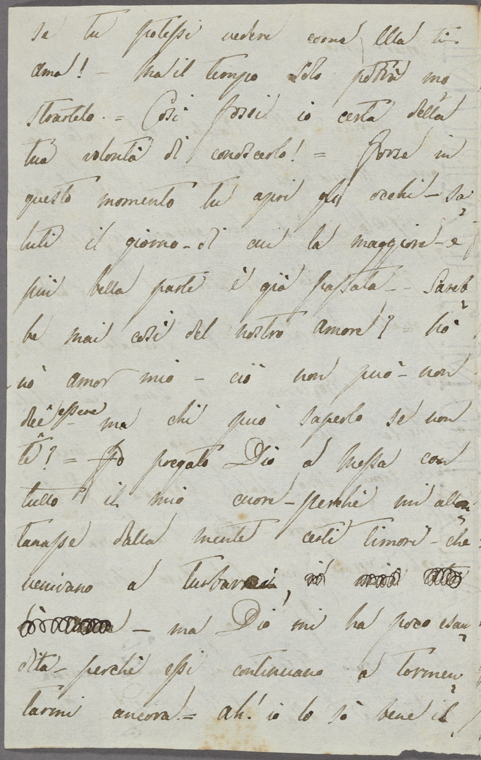 se tu potessi vedere come Ella ti
ama! – Ma il tempo solo potrà mo
strartelo. = Così fossi io certa della
tua volontà di conoscerlo! = Forse in
questo momento tu apri gli occhi – sa
luti il giorno – di cui la maggiore – e
più bella parte è già passata – Sareb
be mai così del nostro Amore? = No
nò amor mio – ciò non può – non
deè essere ma chi può saperlo se non
tè? = Ho pregato Dio a Messa con
tutto il mio cuore – perché mi allon
tanasse dalla mente certi timori – che
venivano a turbar
– ma Dio mi ha poco esau
dita – perchè essi continuano a tormen
tarmi ancora! = ah! io lo sò bene il